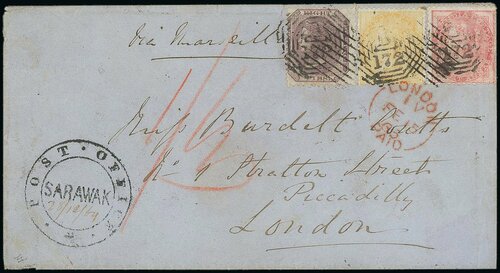 via Marseill
EIGHT
172
LONDON
PAID
Miss Burdett Coutts
No 1 Stratton Street
Piccadilly
London
POST OFFICE
SARAWAK